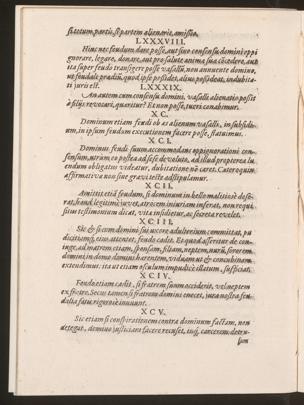 si totum, partis, si partem alienarit, amissio.
LXXXVIII.
Hinc nec feudum dare posse, aut sine consensu domini oppi
gnorare, legare, donare, aut pro salute anima sua concedere, aut
super feudo transigere posse vasallum, non annuente domino,
ne feudale praedium, quod ipse possidet, alius possideat, indubita
ti juris est.
LXXXIX.
An autem cum consensu domini, vasalli alienatio posit
à filijs revocari, quaeritur? Et non posse, tueri conabimur.
XC.
Dominum etiam feudi ob aes alienum vasalli, in subsidi-
um, in ipsum feudum executionem facere posse, statuimus.
XCI.
Dominus feudi suum accommodans oppignorationi con-
sensum, utrum eo postea ad se devoluto, ad illud propterea lu-
endum obligatus videatur, dubitatione non caret. Caeterum
affirmativa non sine gravi teste adstipulamur.
XCII.
Amittit etiam feudum, si dominum in bello malitiose dese-
rat, si
sitve testimonium dicat, vitae insidietur, ac secreta revelet.
XCIII.
Sic & si cum domini sui uxore adulterium committat, pu
dicitiamque, eius attentet, feudo cadit. Et quod asseritur de con-
iuge, ad matrem etiam, sponsam, filiam, neptem, nurum, sororem
domini, in domo domini haerentem, viduam ut & concubinam
extendimus. ita ut etiam osculum impudice illatum, sufficiat.
XCIV.
Feudo etiam cadit, si fratrem suum occiderit, vel neptem
ex fratre. Secus tamen si fratrem domini enecet, jura nostra feu-
dalia
XCV.
Sic etiam si conspirationem contra dominum factam, non
detegat, domino justiciam facere recuset,